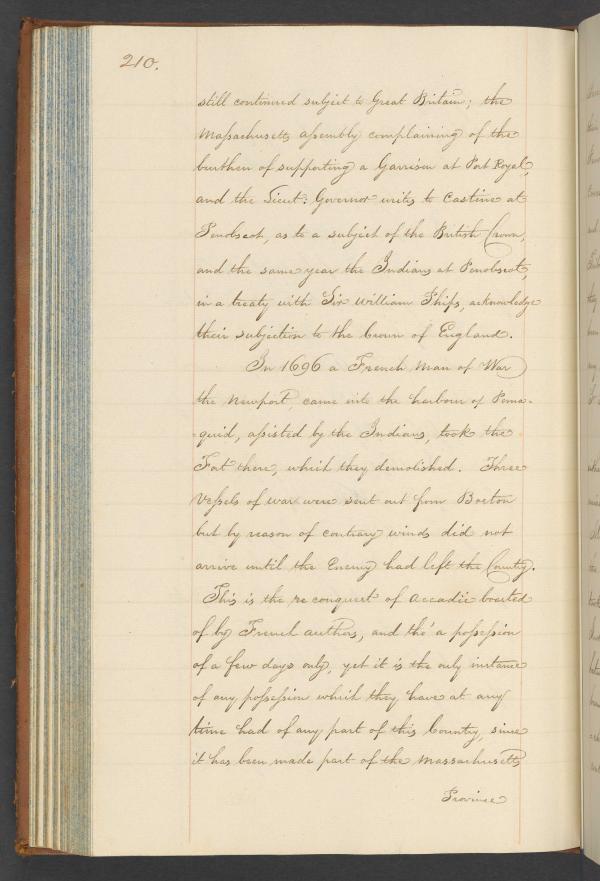 210.
still continued subject to Great Britain; the
Massachusetts assembly complaining of the
burthen of supporting a Garrison at Port Royal,
and the Lieut: Governor writes to Castine at
Penobscot, as to a subject of the British Crown,
and the same year the Indians at Penobscot,
in a treaty with Sir William Phips, acknowledge
their subjection to the Crown of England.
In 1696 a French Man of War
the Newport, came into the harbour of Pema-
-quid, assisted by the Indians, took the
Fort there, which they demolished. Three
Vessels of war were sent out from Boston
but by reason of contrary winds did not
arrive until the Enemy had left the County.
This is the re conquest of Accadie boasted
of by French authors, and tho' a possession
of a few days only, yet it is the only instance
of any possession which they have at any
time had of any part of this County, since
it has been made part of the Massachusetts
Province